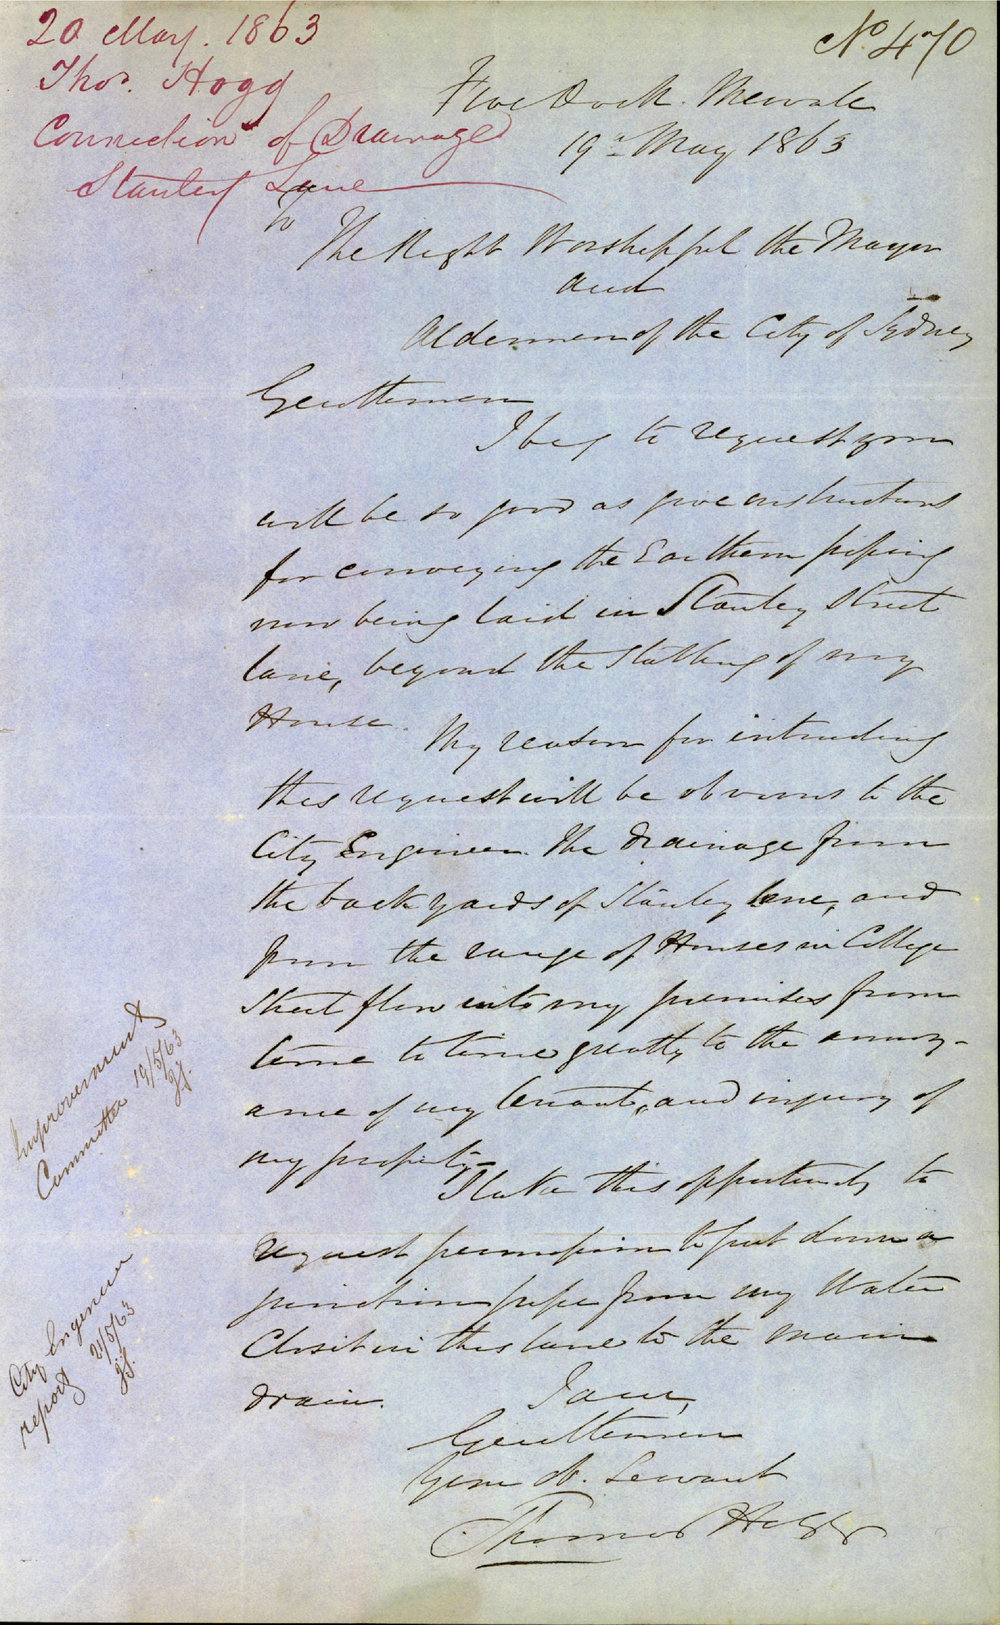 20 May. 1863
Thos. Hogg
Connection of Drainage
Stanley Lane
No 470
Five Dock.
19th May 1863
To
The Right Worshipful the Mayor
and
Aldermen of the City of Sydney
Gentlemen
I beg to request you
will be so good as give instructions
for conveying the Earthern piping
now being laid in Stanley Street
lane, beyond the Stabling of my
House.
My reason for intruding
this request will be obvious to the
City Engineer. The drainage from
the back yards of Stanley lane, and
from the range of Houses in College
Street flow into my premises from
time to time greatly to the annoy-
ance of my tenant, and injury of
my property.
I take this opportunity to
request permission to put down a
junction pipe from my Water
Closet in this lane to the main
drain.
I am,
Gentlemen
Your ob. Servant
Thomas Hogg
Improvement
Committee 19/5/63
City Engineer
report 21/5/63